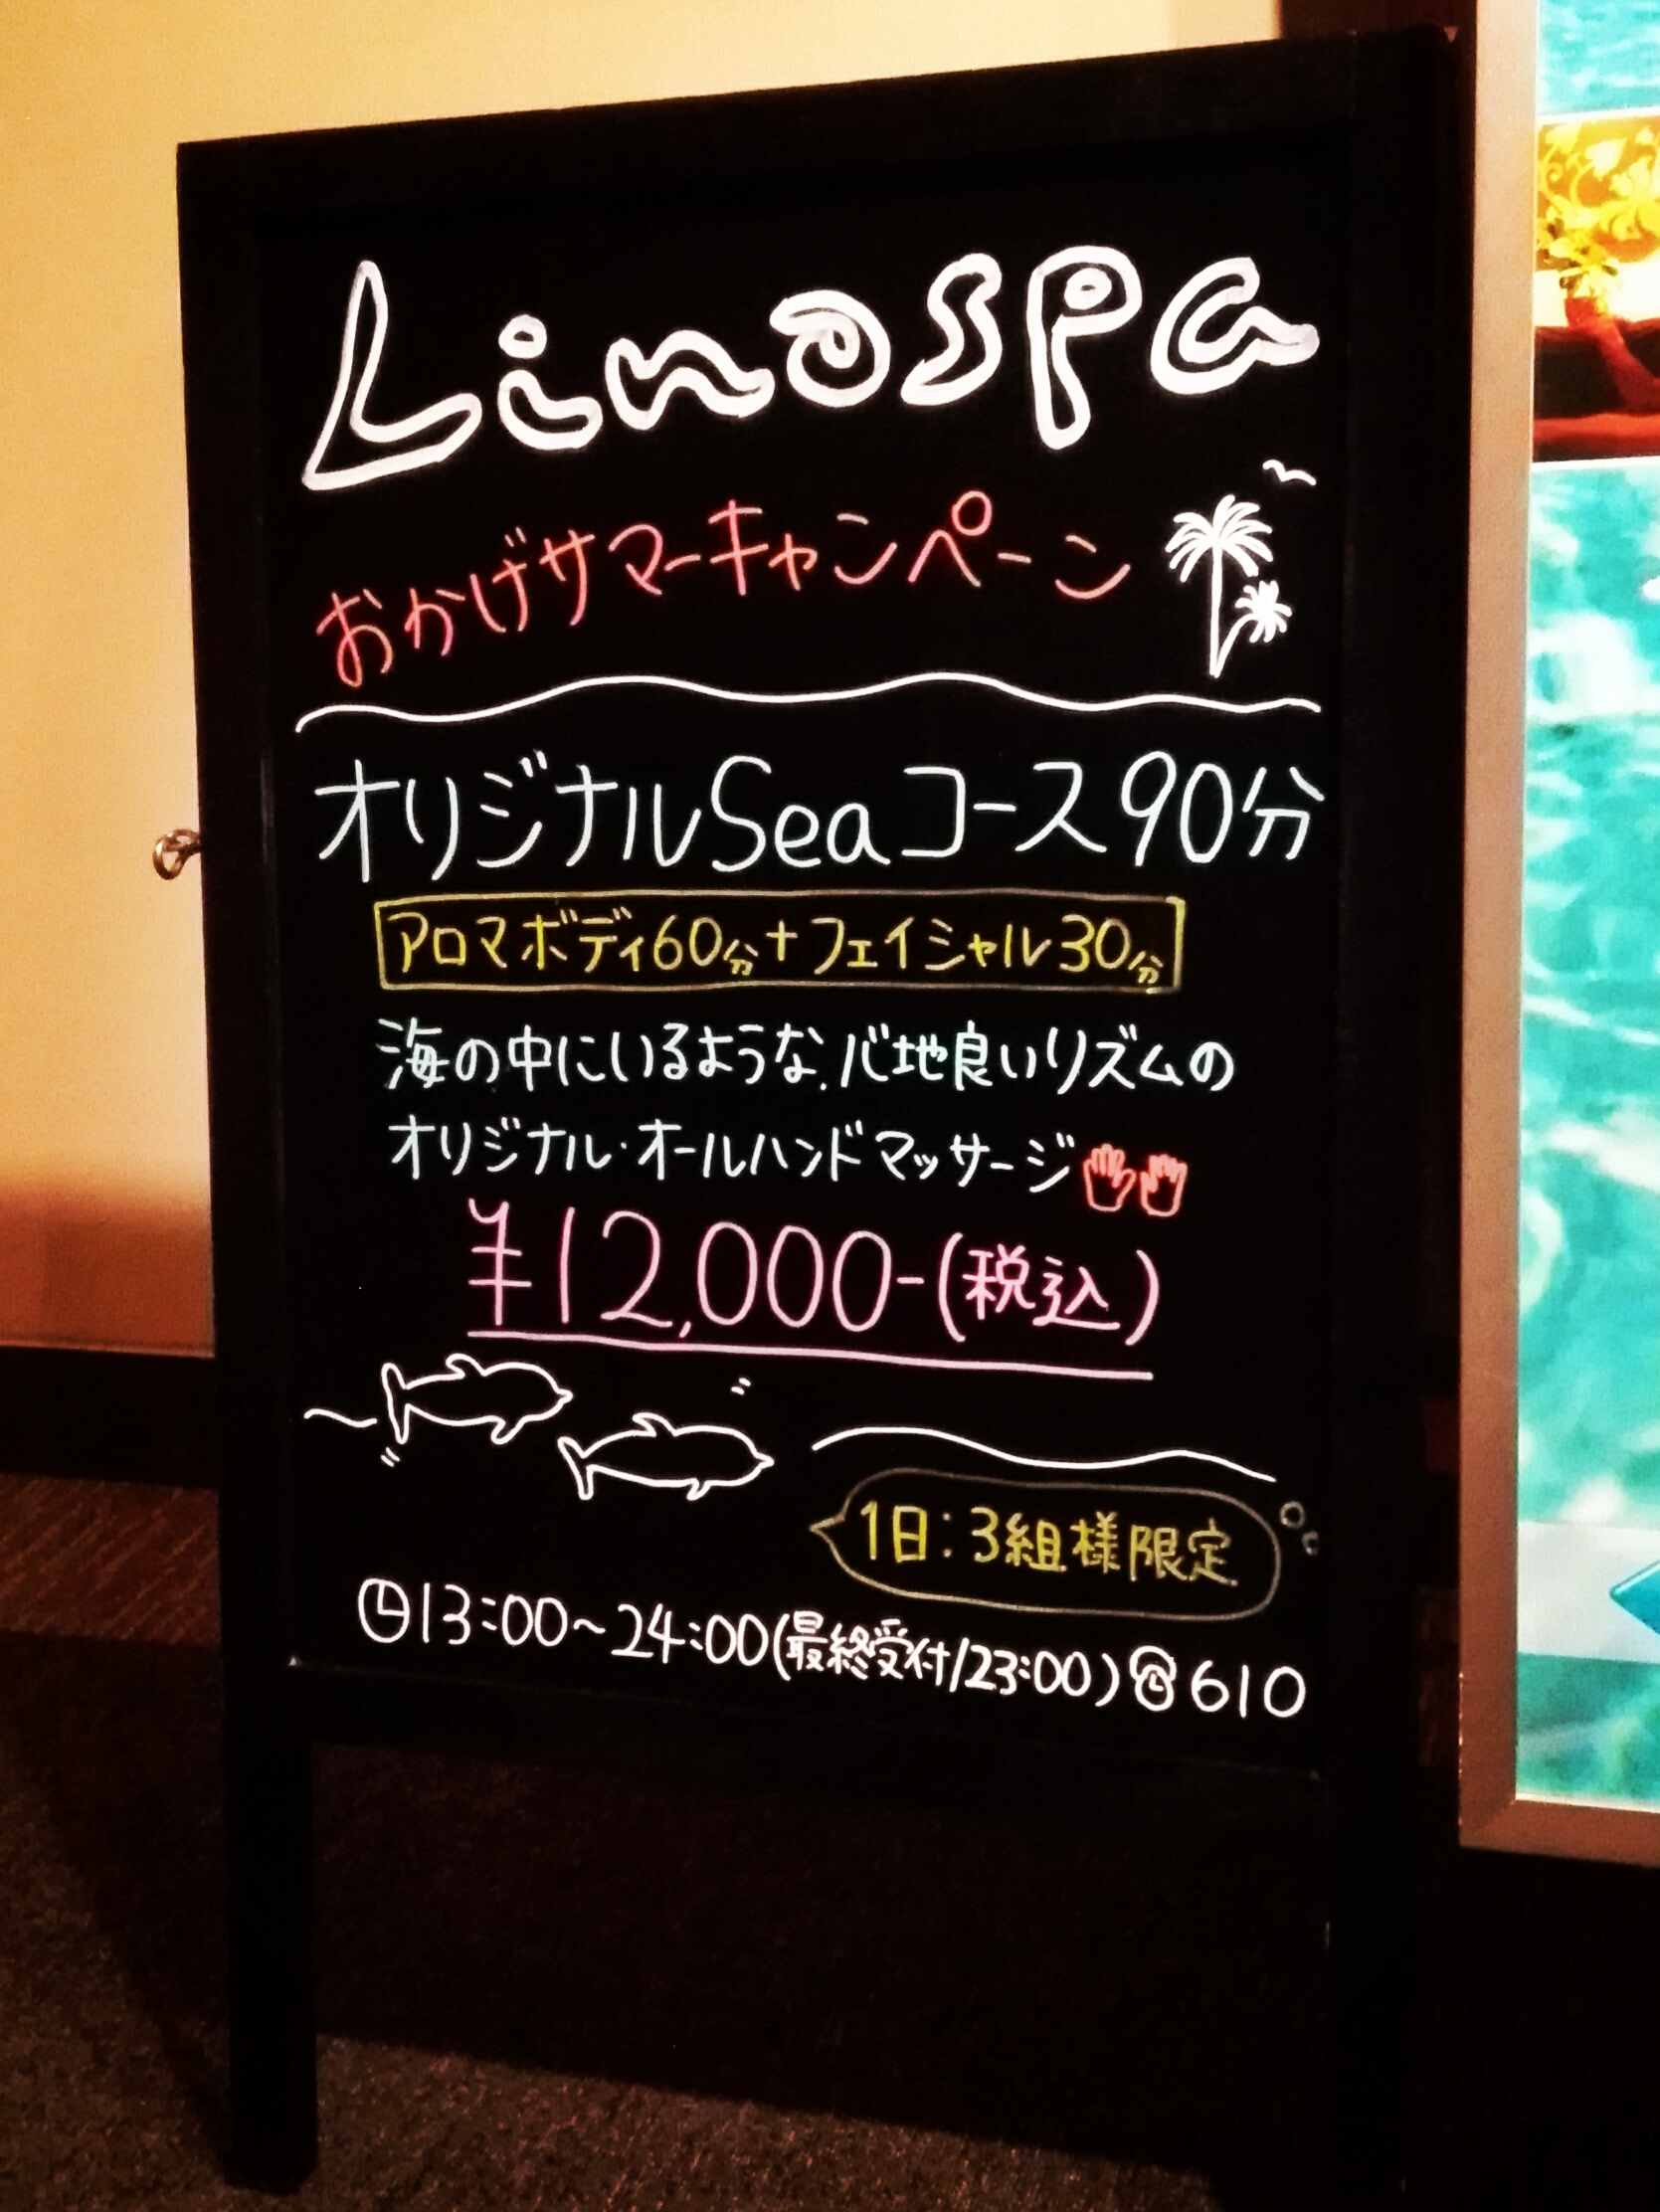 Linospa
おかげサマーキャンペーン
オリジナルSeaコース90分
アロマボディ60分+フェイシャル30分
海の中にいるような、心地良いリズムの
オリジナル・オールハンドマッサージ
¥12,000-(税込)
1日:3組様限定
13:00~24:00(最終受付/23:00)☎610